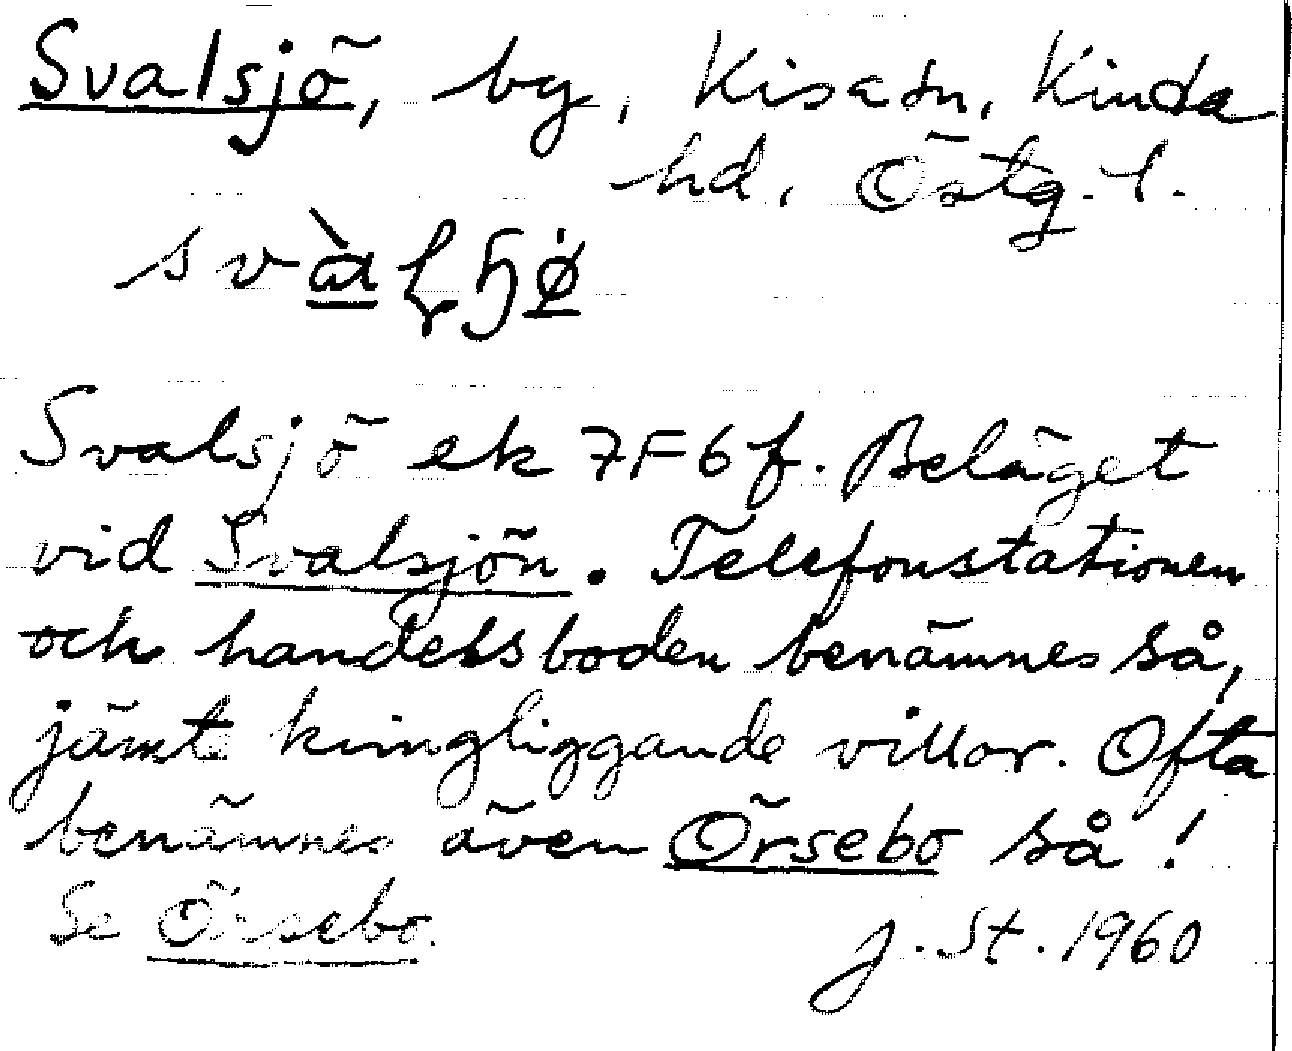 Svalsjö, by, Kisa sn, Kinda
hd, Östg. l.
Svalsjö ek 7F6f. Beläget
vid Svalsjön. Telefonstationen
och handelsboden benämnes så,
jämte kringliggande villor. Ofta
benämnes även Örsebo så!
Se Örsebo.
J. St. 1960